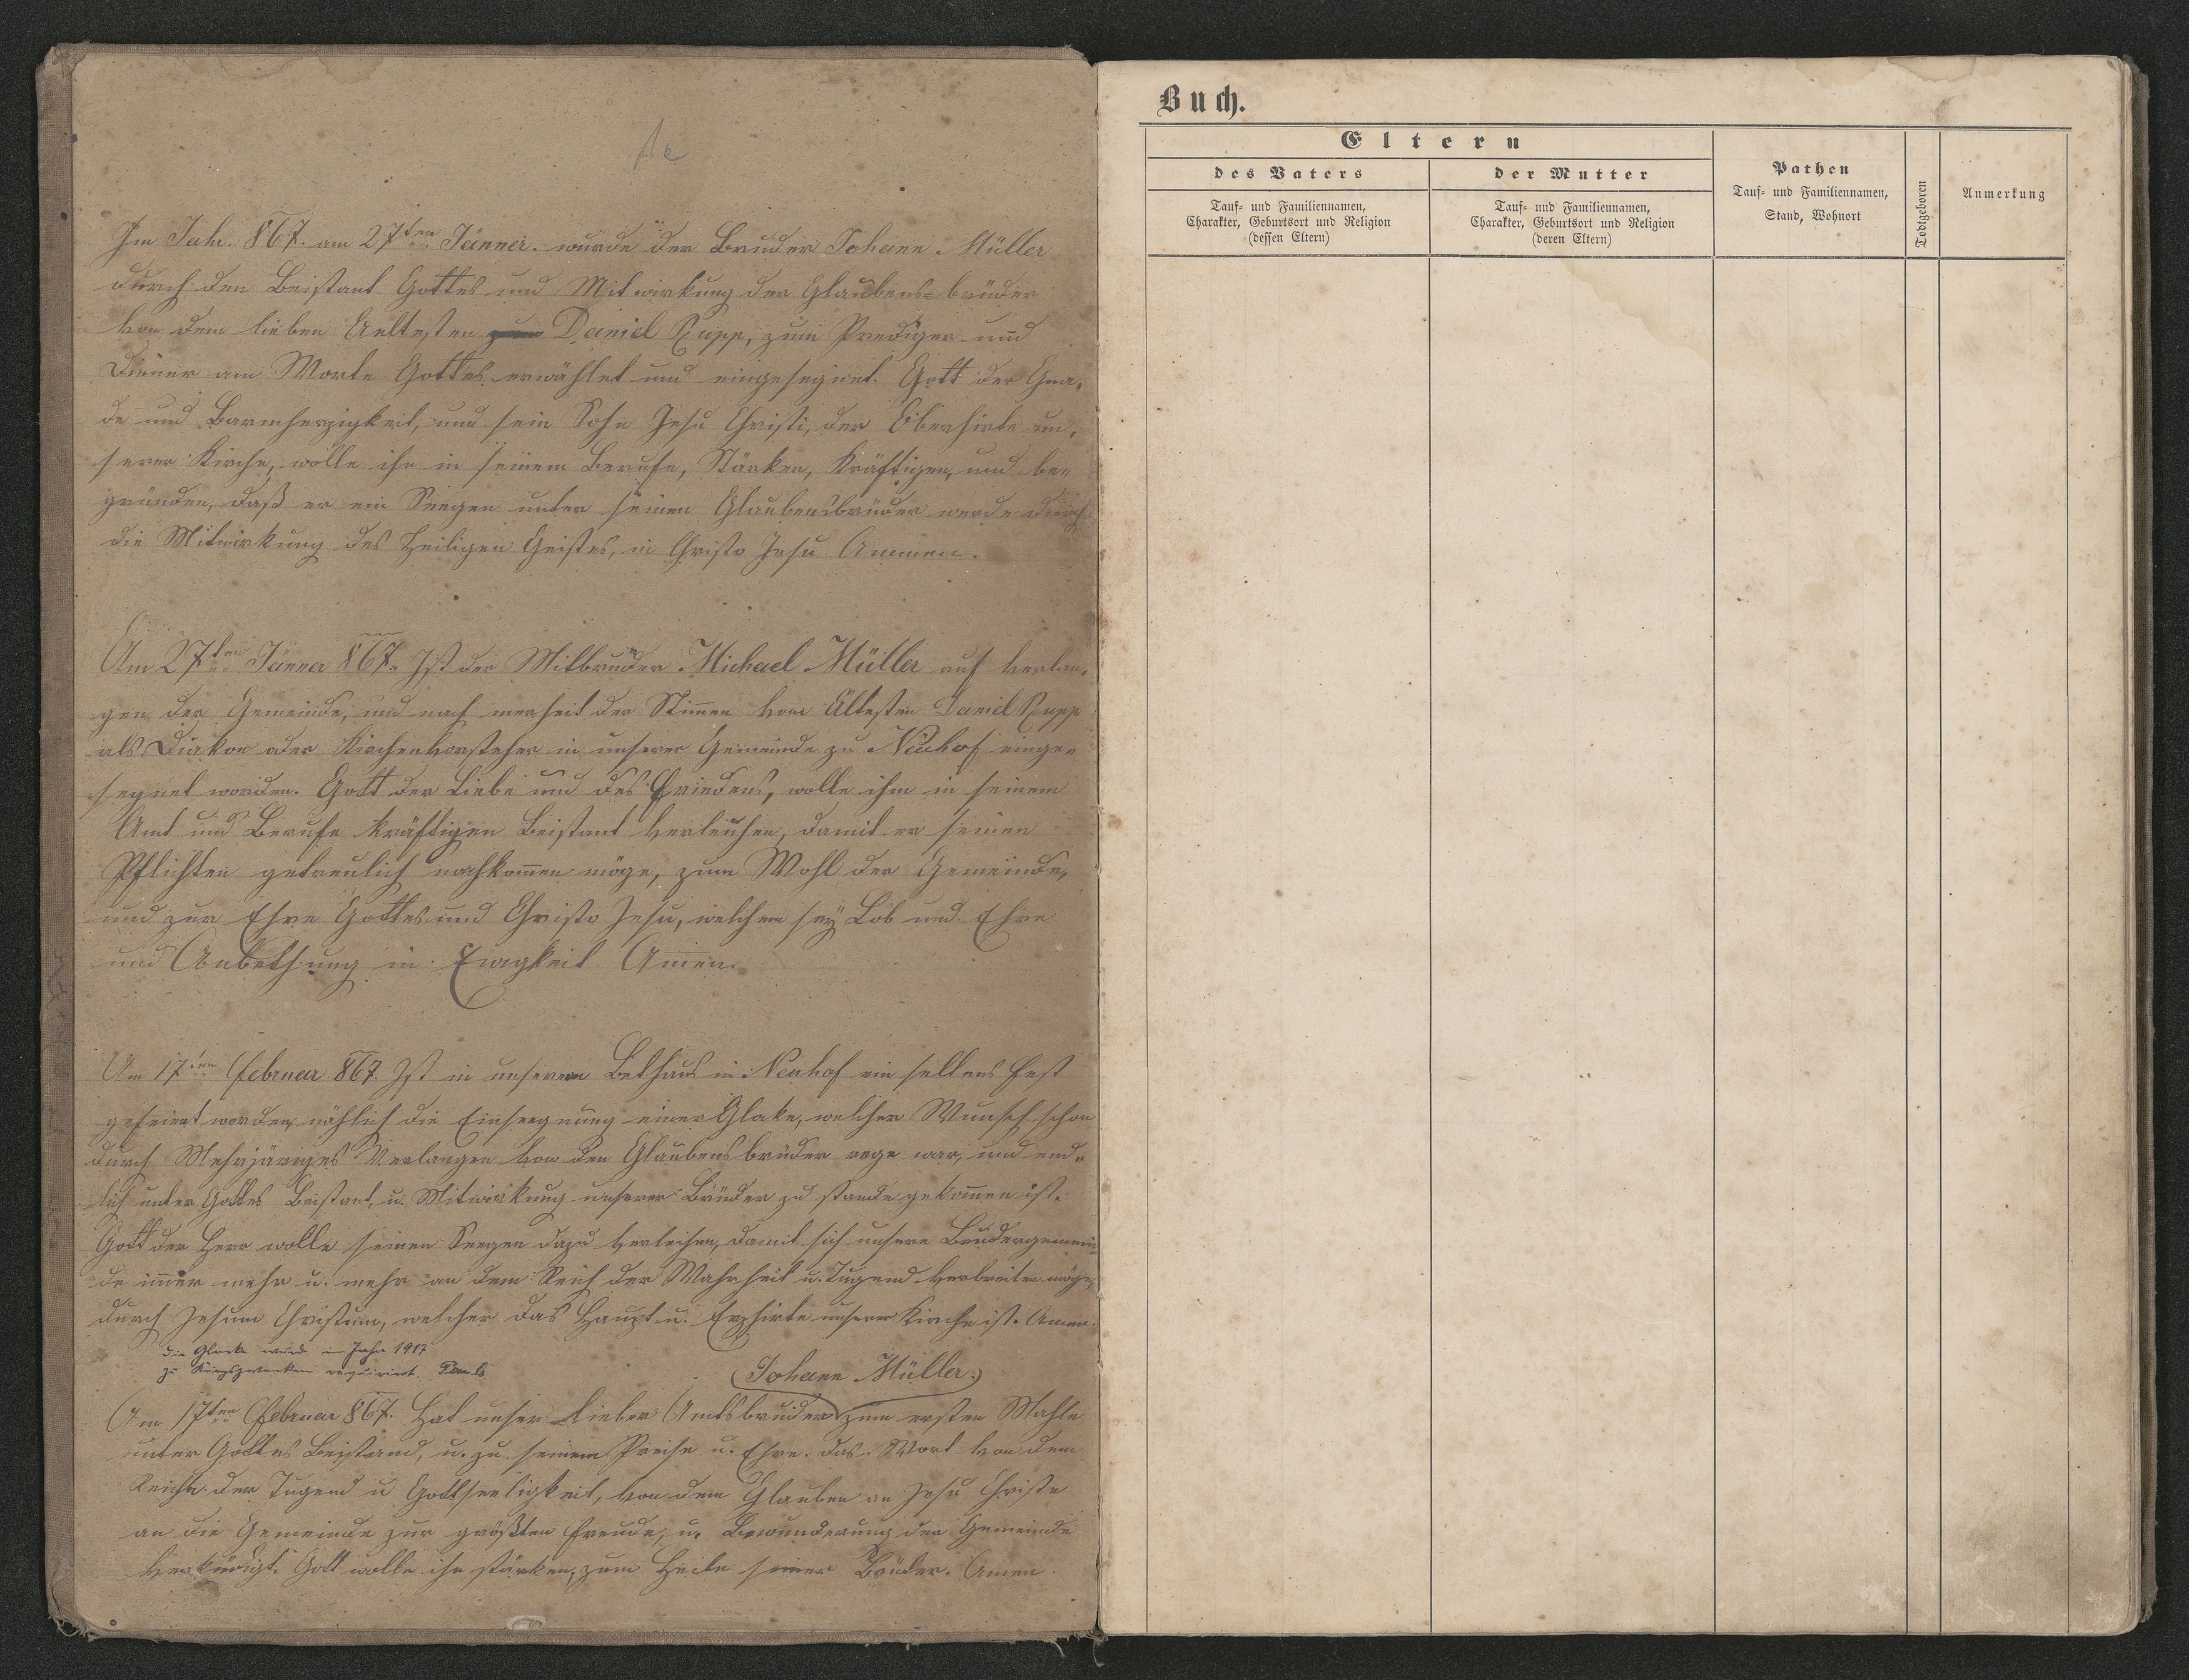 Im Jahr. 867. am 27ten Jänner. wurde der Bruder Johann Müller
durch den Beistant Gottes und Mitwirkung der Glaubens=brüder
von dem lieben Aeltesten Daniel Rupp, zum Prediger und
Diener am Worte Gottes erwählet und eingesegnet. Gott der Gna-
de und Barmherzigkeit, und sein Sohn Jesu Christi, der Oberhirte un-
serer Kirche, wolle ihn in seinem Berufe, Stärken, Kräftigen, und be-
gründen, daß er ein Seegen unter seinen Glaubensbrüder werde durch
die Mitwirkung des Heiligen Geistes, in Christo Jesu Ammen.
Am 27ten Jänner 867. Ist der Mitbruder Michael Müller auf verlan-
gen der Gemeinde, und nach merheit der Stimen vom Ältesten Daniel Rupp
als Diakon oder Kirchenvorsteher in unserer Gemeinde zu Neuhof einge-
segnet worden. Gott der Liebe und des Friedens, wolle ihm in seinem
Amt und Berufe kräftigen Beistant verleuhen, damit er seinen
Pflichten getreulich nachkomen möge, zum Wohl der Gemeinde,
und zur Ehre Gottes und Christo Jesu, welchem sey Lob und Ehre
und Anbethung in Ewigkeit Amen.
Am 17ten Februar 867. Ist in unserem Bethaus in Neuhof ein seltens Fest
gefeiert worden, nählich die Einseegnung einer Gloke, welcher Wunsch schon
durch Mehrjäriges Verlangen von den Glaubensbrüder rege war, und end-
lich unter Gottes Beistant, u. Mitwirkung unserer Brüder zu stande gekomen ist.
Gott der Herr wolle seinen Seegen dazu verleihen, damit sich unsere Brudergemein-
de imer mehr u. mehr an dem Reich der Wahrheit u. Tugend verbreiten möge,
durch Jesum Christum, welcher das Haupt u. Erzhirte unserer Kirche ist. Amen.
Die Glocke wurde im Jahre 1917
zu Kriegszwecken requirirt.
Johann Müller
Am 17ten Februar 867. Hat unser lieber Amtsbruder zum ersten Mahle
unter Gottes Beistand, u. zu seinem Preise u. Ehre. das Wort von dem
Reiche der Tugend u Gottseeligkeit, von dem Glauben an Jesu Christo
an die Gemeinde zur größten Freude, u. Bewunderung der Gemeinde
verkündigt. Gott wolle ihn stärken, zum Heile seiner Brüder. Amen.
Buch.
Eltern
des Vaters
der Mutter
Tauf= und Familiennamen,
Charakter, Geburtsort und Religion
(dessen Eltern)
Tauf= und Familiennamen,
Charakter, Geburtsort und Religion
(deren Eltern)
Pathen
Tauf= und Familiennamen,
Stand, Wohnort
Todtgeboren
Anmerkung